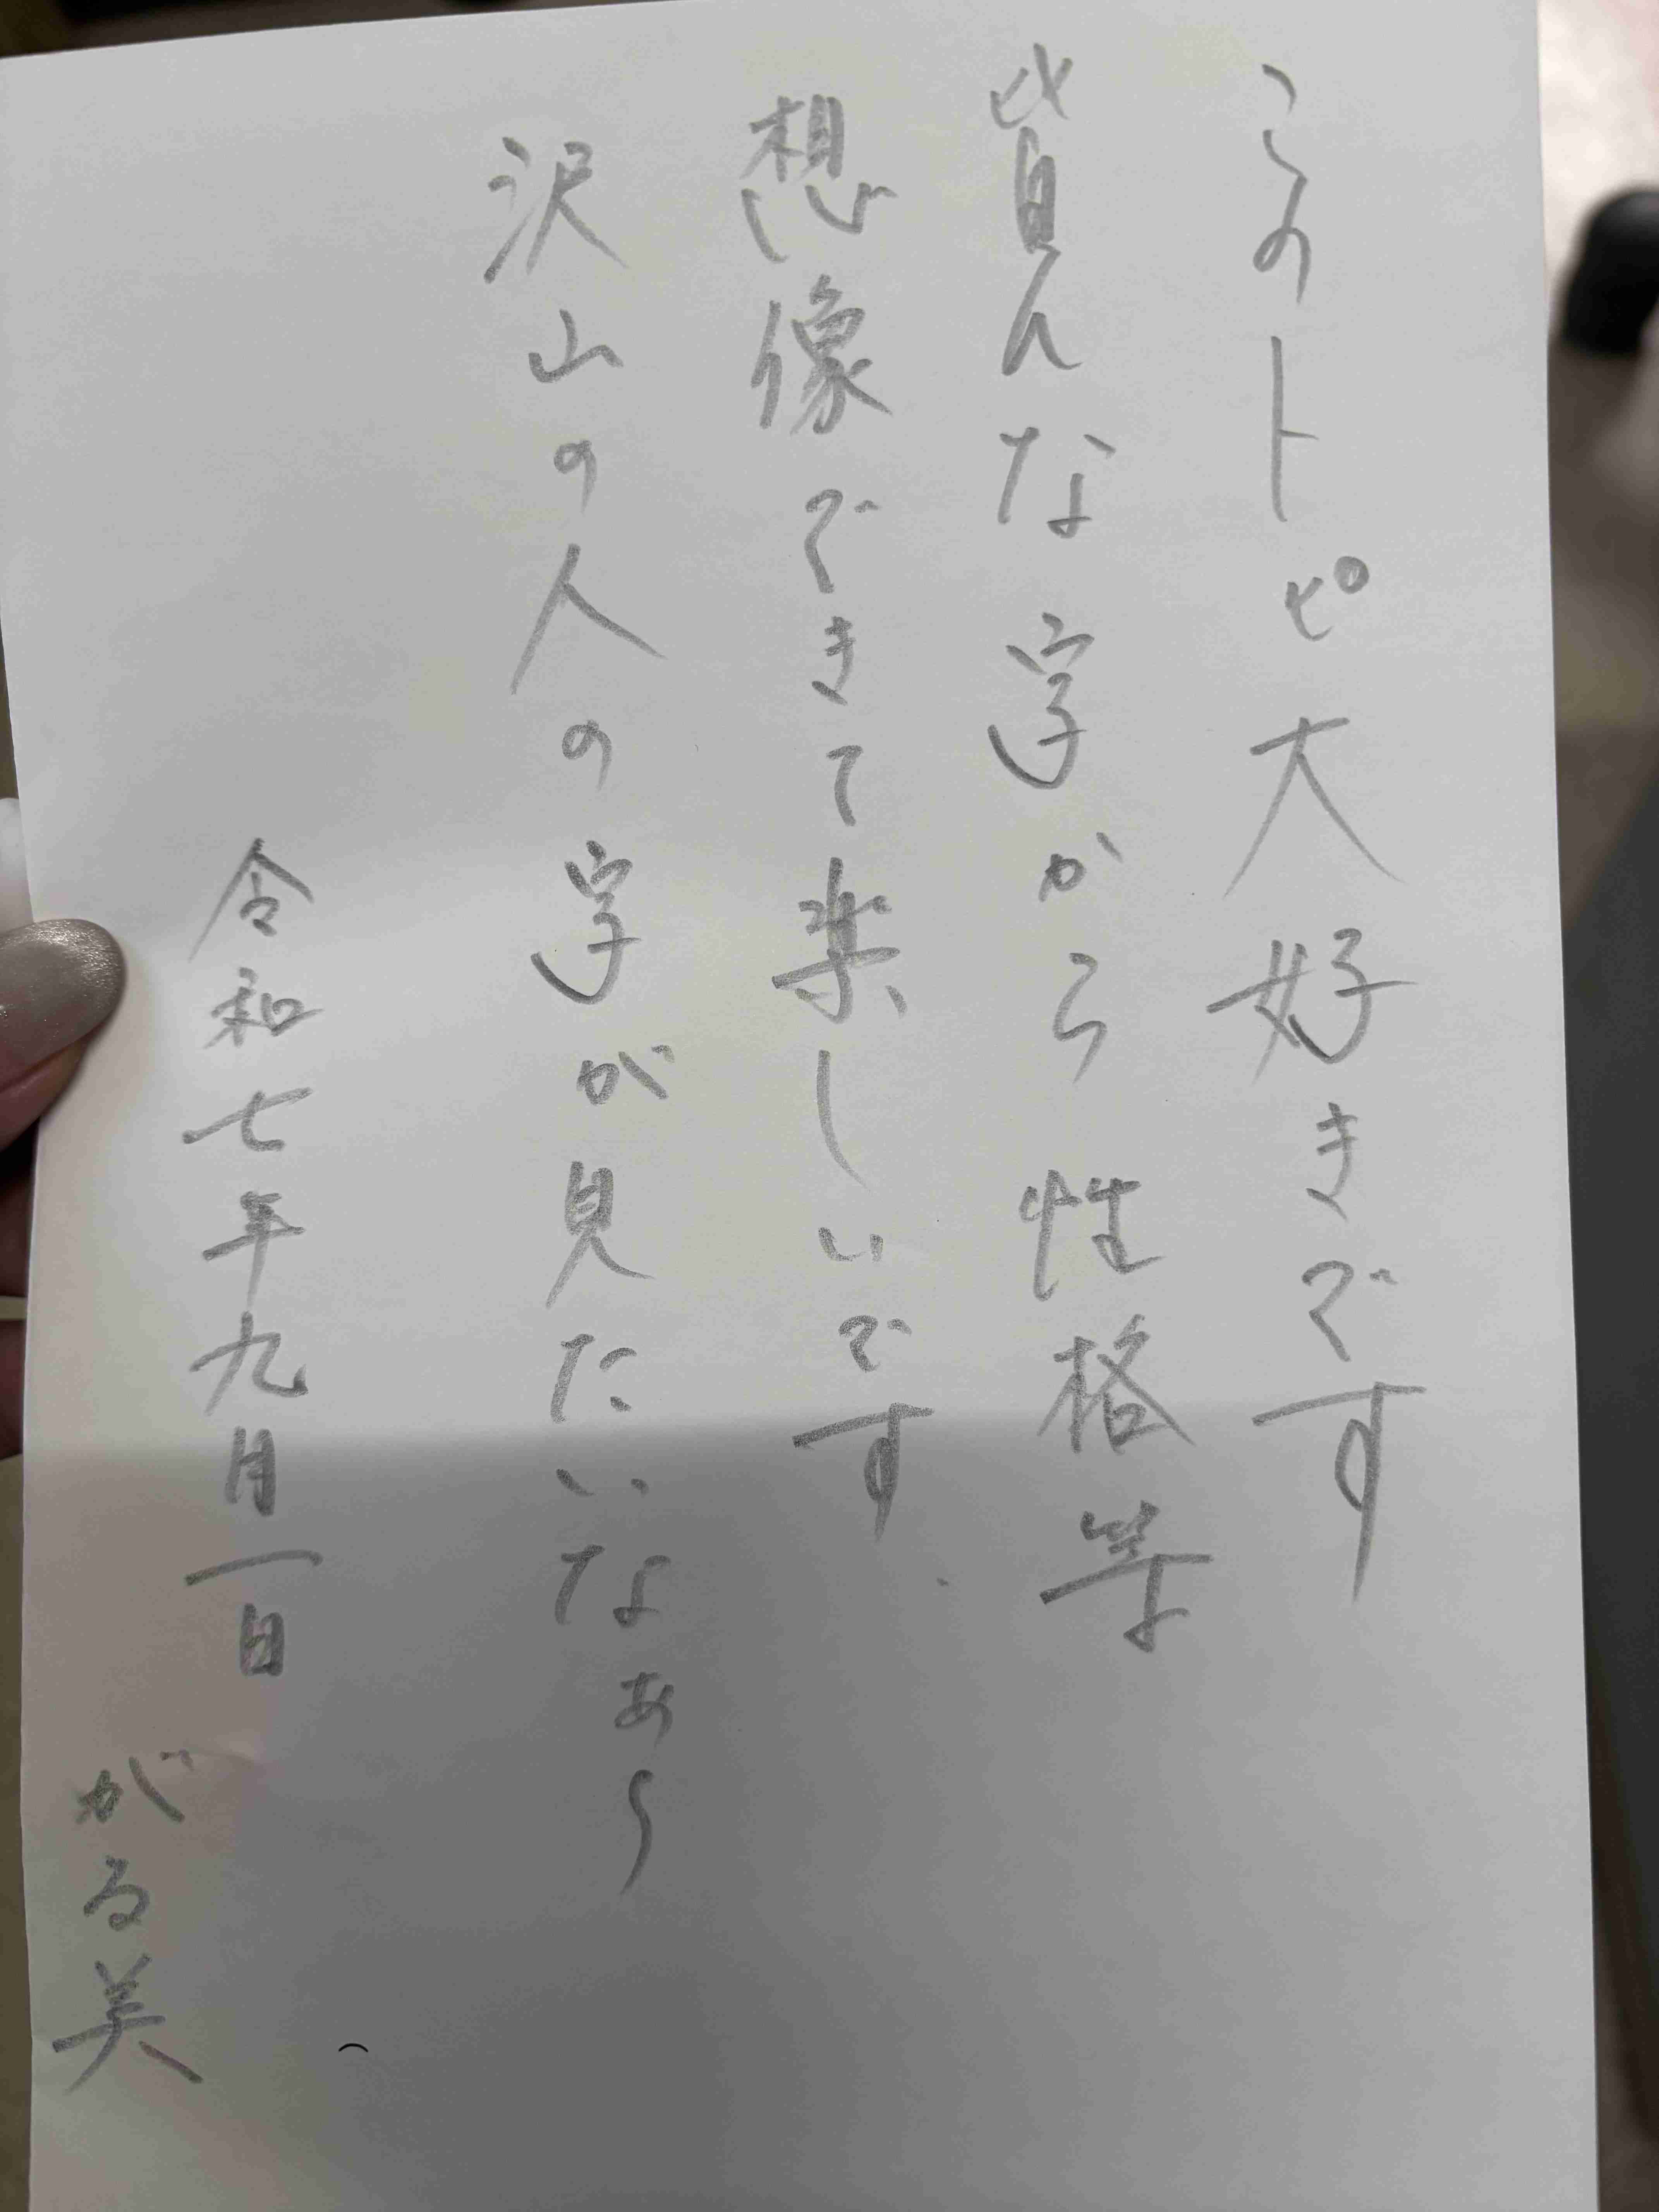 このトピ大好きです
皆んな字から性格等
想像できて楽しいです
沢山の人の字が見たいなぁ〜
令和七年九月一日
がる美